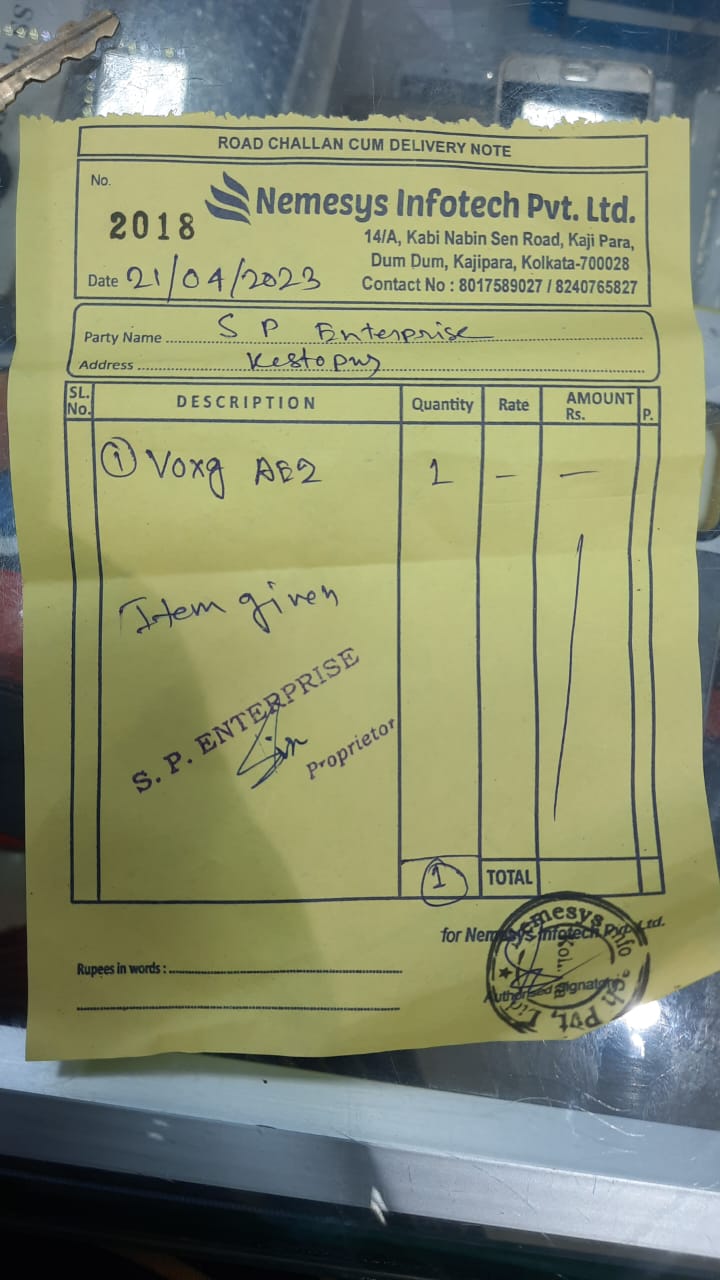 ROAD CHALLAN CUM DELIVERY NOTE
No.
2018
Nemesys Infotech Pvt. Ltd.
14/A, Kabi Nabin Sen Road, Kaji Para,
Dum Dum, Kajipara, Kolkata-700028
Date 21/04/2023
Contact No : 8017589027 / 8240765827
Party Name S P Enterprise
Address Kestopur
SL. No. DESCRIPTION Quantity Rate AMOUNT Rs. P.
① Voxg AE2 1 – —
Item given
S. P. ENTERPRISE
Proprietor
1 TOTAL
for Nemesys Infotech Pvt. Ltd.
Rupees in words :
Authorised Signatory